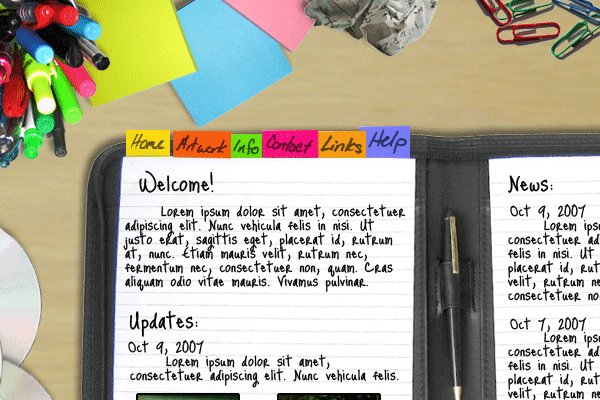 Home Artwork Info Contact Links Help
Welcome!
Lorem ipsum dolor sit amet, consectetuer
adipiscing elit. Nunc vehicula felis in nisi. Ut
justo erat, sagittis eget, placerat id, rutrum
at, nunc. Etiam mauris velit, rutrum nec,
fermentum nec, consectetuer non, quam. Cras
aliquam odio vitae mauris. Vivamus pulvinar.
Updates:
Oct 9, 2007
Lorem ipsum dolor sit amet,
consectetuer adipiscing elit. Nunc vehicula felis.
News:
Oct 9, 2007
Lorem
consectetuer
felis in nisi. Ut
placerat id,
velit, rutrum
consectetuer
Oct 7, 2007
Lorem
consectetuer
felis in nisi. Ut
placerat id,
velit, rutrum